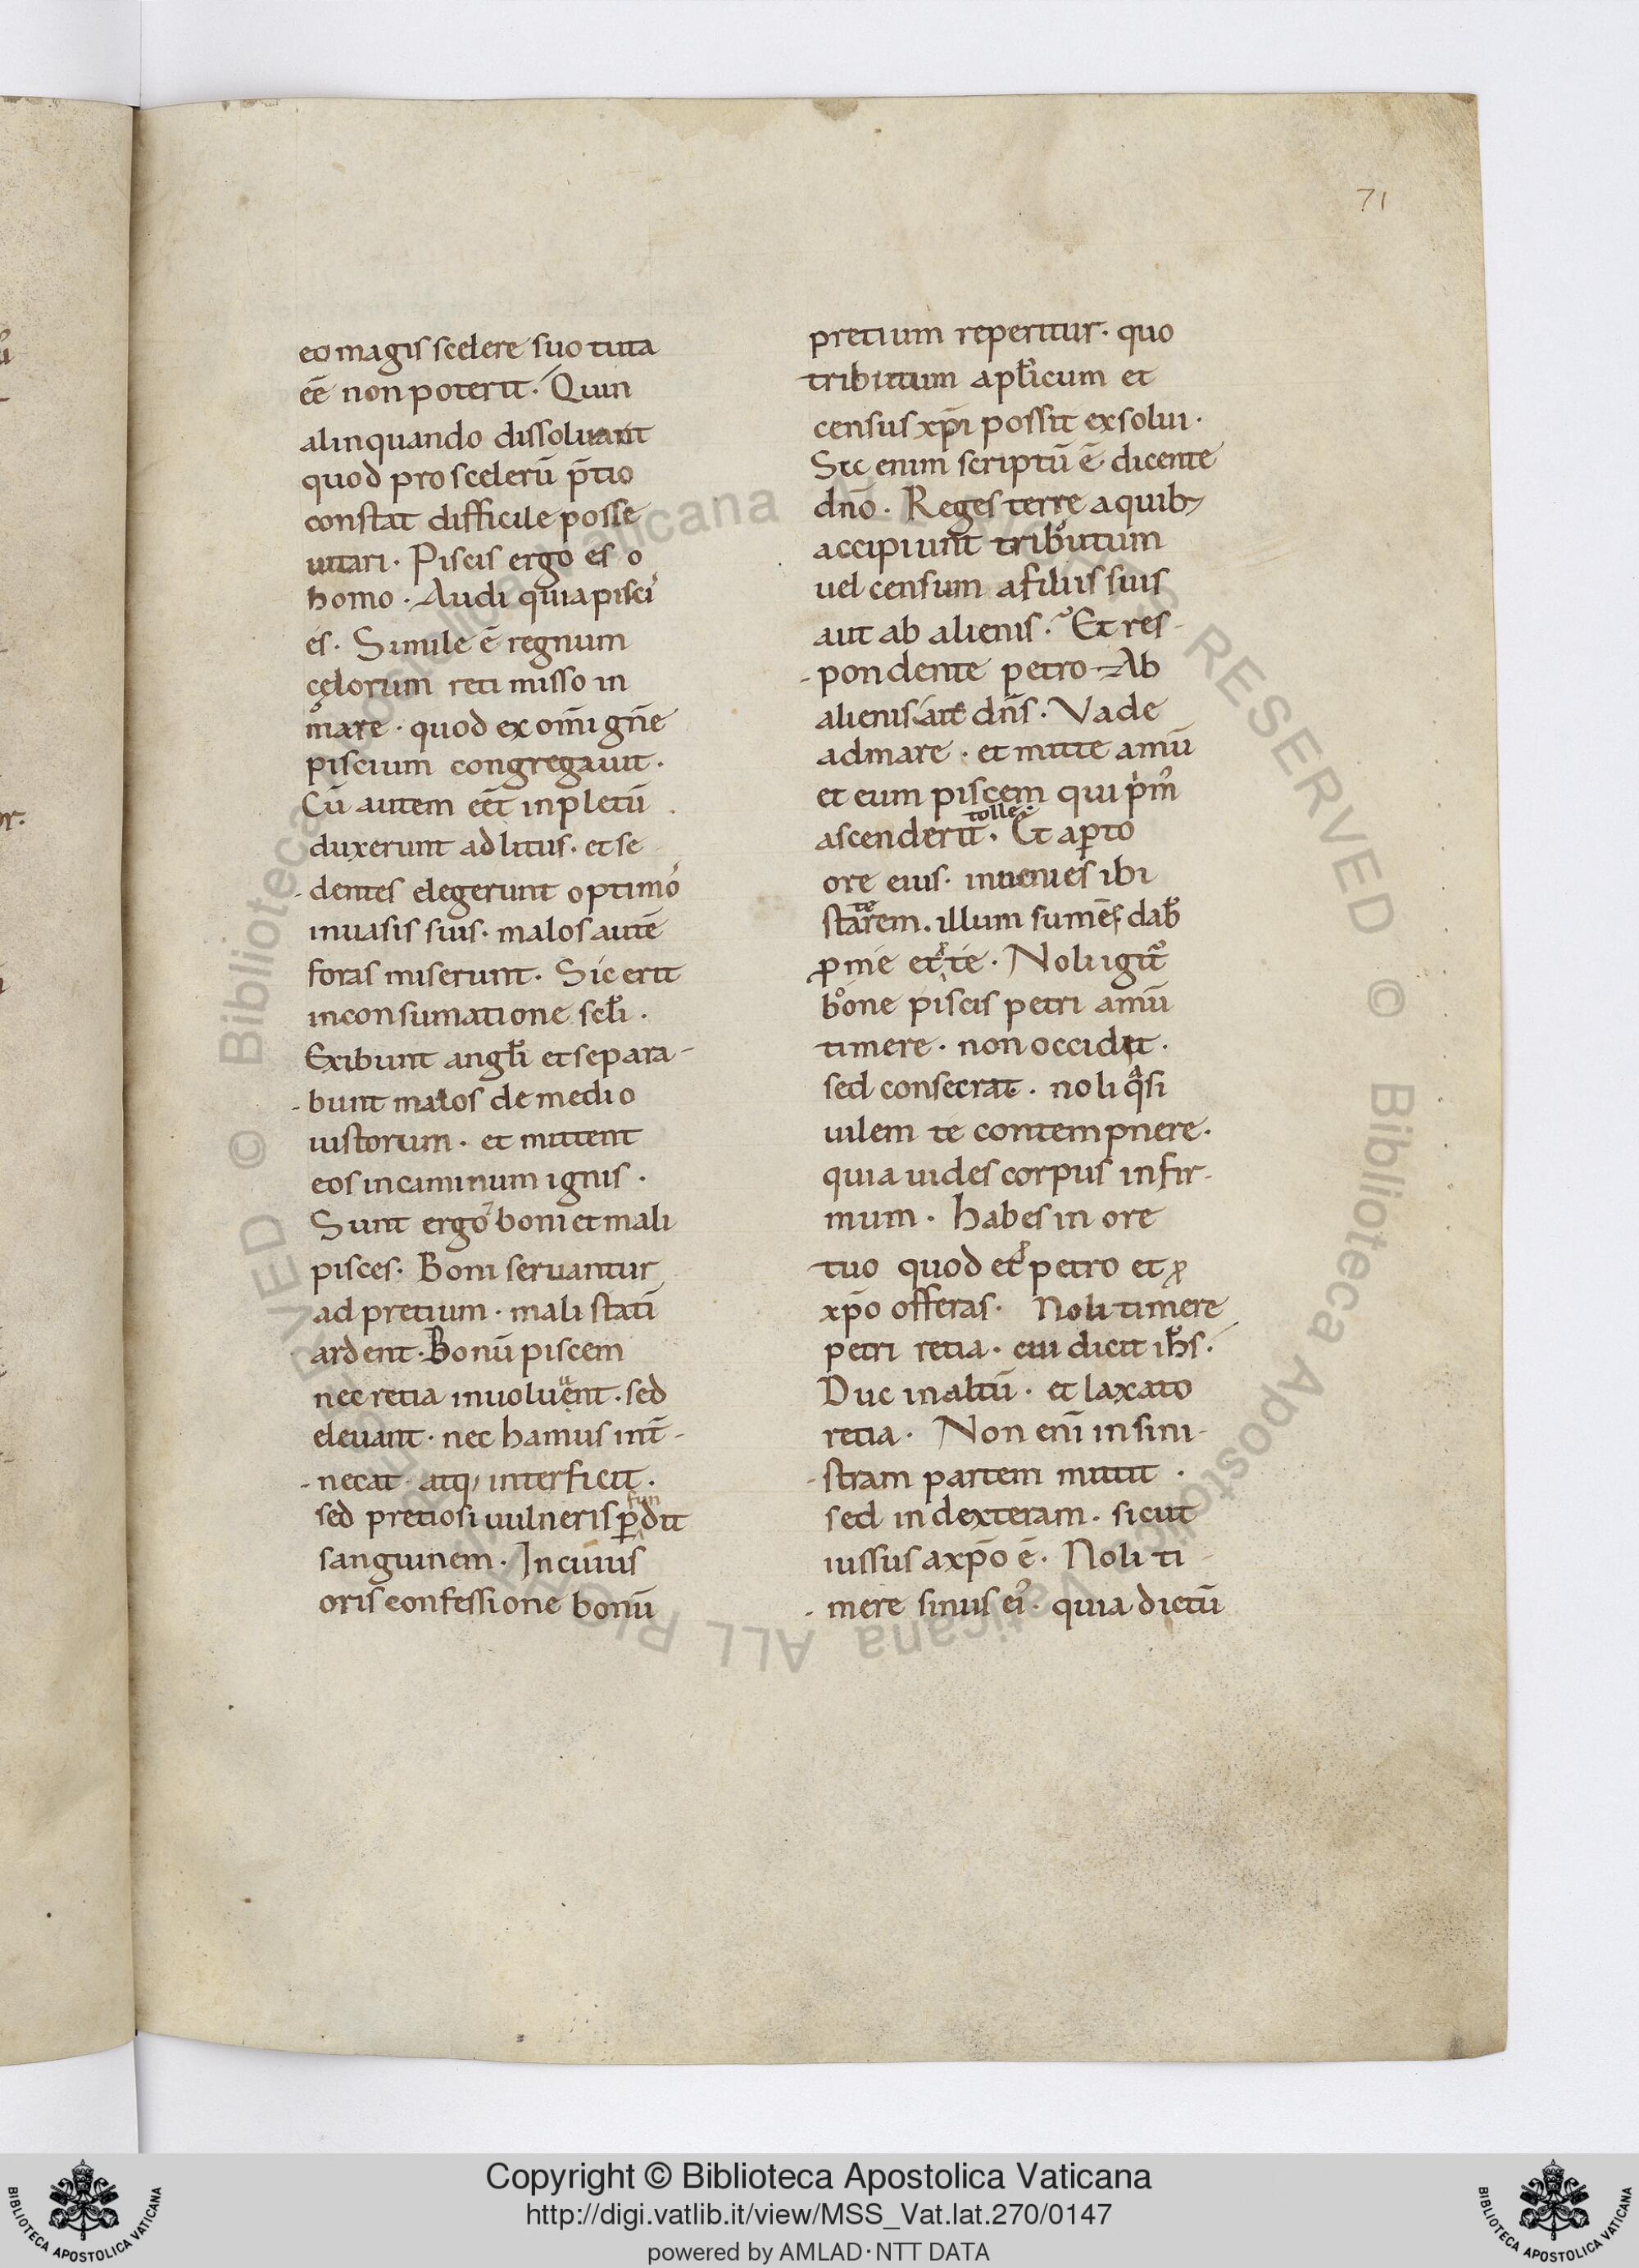 71
eo magis scelere suo tuta
eē non poterit. Quin
alinquando dissoluant
quod pro scelerū p̄tio
constat difficile posse
uitari. Piscis ergo es o
homo. Audi quia pisciˀ
es. Simile ē regnum
cęlorum reti misso in
mare. quod ex om̄i gn̄e
piscium congregauit.
Cū autem eēt inpletū
duxerunt ad litus. et se
dentes elegerunt optimoˀ
in uasis suis. malos autē
foras miserunt. Sic erit
in consumatione scl̄i.
Exibunt angl̄i et separa-
bunt malos de medio
iustorum. et mittent
eos in caminum ignis.
Sunt ergo boni et mali
pisces. Boni seruantur
ad pretium. mali statī
ardent. Bonū piscem
nec retia inuoluent. sed
eleuant. nec hamus int̄-
necat atq; interficit.
sed pretiosi uulneris ꝑfundit
sanguinem. In cuius
oris confessione bonū
pretium reperitur. quo
tributum apl̄icum et
census xp̄i possit exsolui.
Sic enim scriptū ē dicente
dn̄o. Reges terre a quib;
accipiunt tributum
uel censum a filiis suis
aut ab alienis. Et res-
pondente petro Ab
alienis. ait dn̄s. Vade
ad mare. et mitte amū
et eum piscem qui p̍mˀ
ascenderit. tolle. Et aꝑto
ore eius. inuenies ibi
staterem. illum sumēs dab̄
ꝓ me et ꝓ te. Noli igit᷑
bone piscis petri amū
timere. non occidit.
sed consecrat. noli qͣsi
uilem te contempnere.
quia uides corpus infir-
mum. habes in ore
tuo quod et ꝓ petro et ꝓ
xp̄o offeras. Noli timere
petri retia. cui dicit ih̄s.
Duc in altū. et laxato
retia. Non eni̅ in sini-
stram partem mittit.
sed in dexteram. sicut
iussus a xp̄o ē. Noli ti-
mere sinus eiˀ. quia dictū
Copyright © Biblioteca Apostolica Vaticana
http://digi.vatlib.it/view/MSS_Vat.lat.270/0147
powered by AMLAD·NTT DATA
BIBLIOTECA APOSTOLICA VATICANA
BIBLIOTECA APOSTOLICA VATICANA